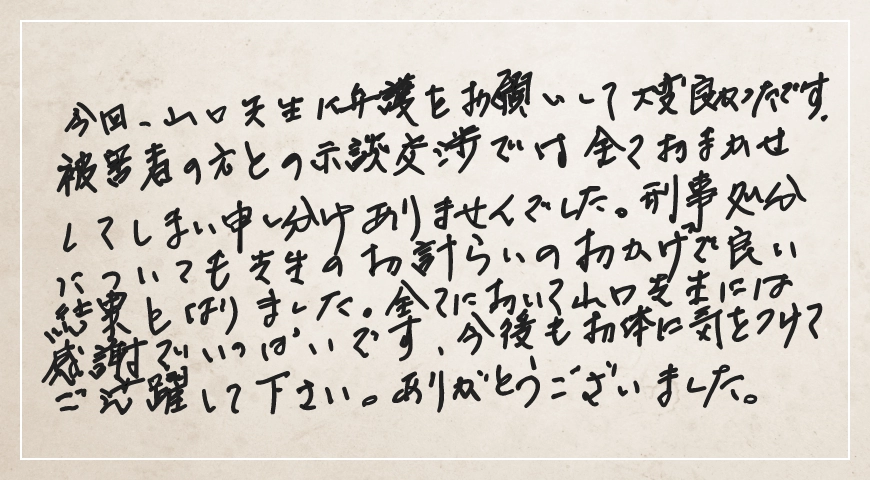 今回、山口先生に弁護をお願いして大変良かったです。
被害者の方との示談交渉では全ておまかせ
してしまい申し分けありませんでした。刑事処分
についても先生のお計らいのおかげで良い
結果となりました。全てにおいて山口先生には
感謝でいっぱいです、今後もお体に気をつけて
ご活躍して下さい。ありがとうございました。